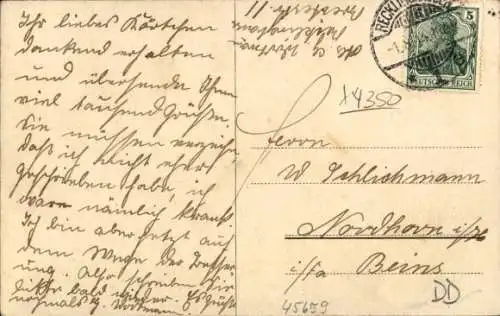 Ihr liebes Kärtchen
dankend erhalten
und übersende Ihnen
viel tausend Grüße.
Sie müssen verzeihe,
daß ich nicht eher
geschrieben habe, ich
war nämlich krank
Ich bin aber jetzt auf
dem Wege der Besser
ung. Also schreiben Sie
bitte bald wieder. Es grüßt
nochmals
RECKLINGHAUSEN
5
DEUTSCHES REICH
14350
Herrn
W Schlichmann
Nordhorn
Beins
45659
DD